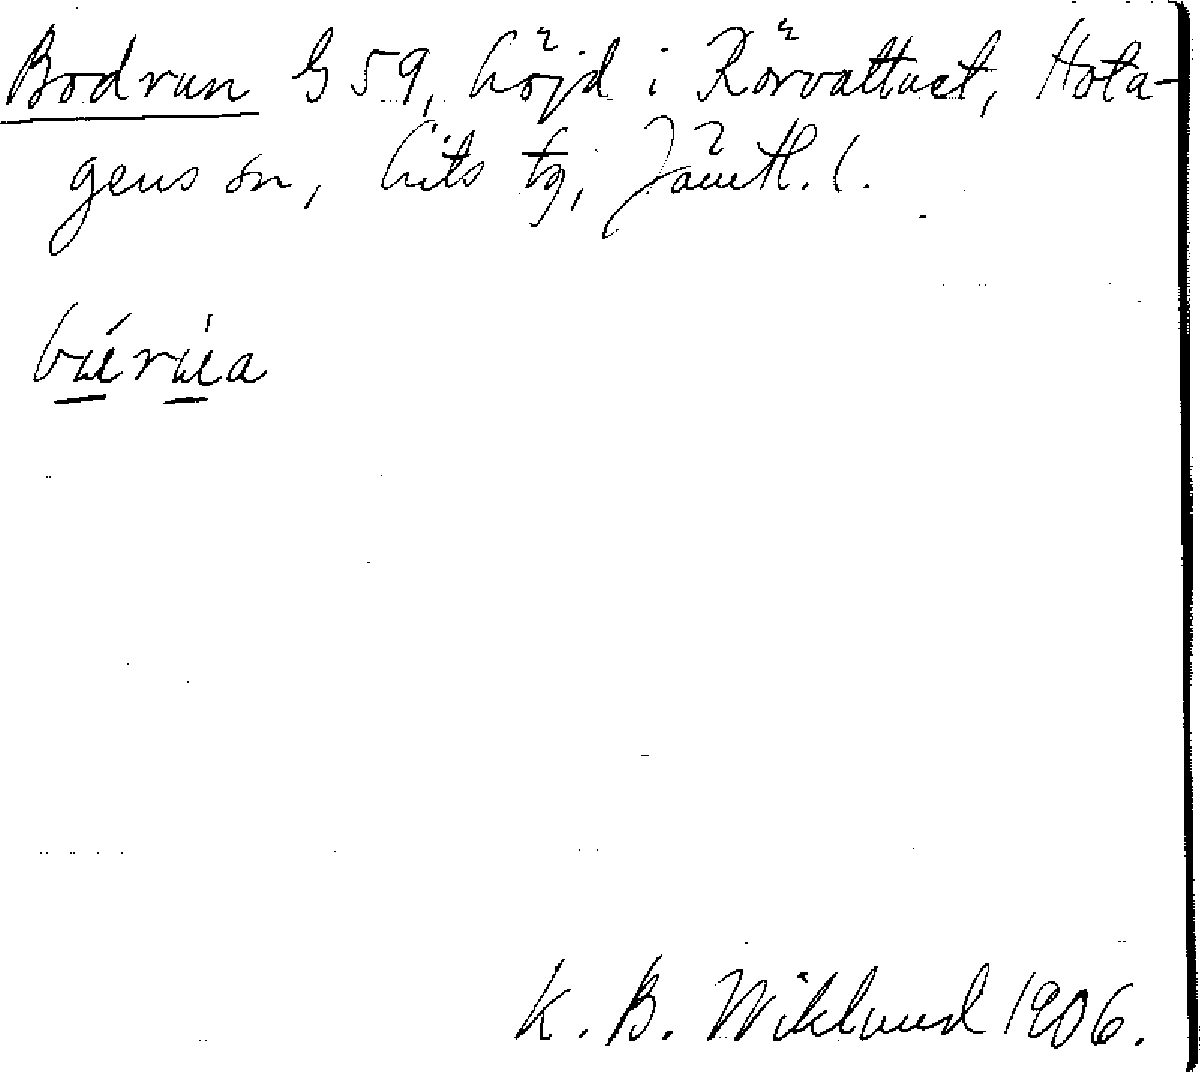 Bodrun G 59, höjd i Rörvattnet, Hota-
gens sn, Lits tg, Jämtl. l.
K. B. Wiklund 1906.